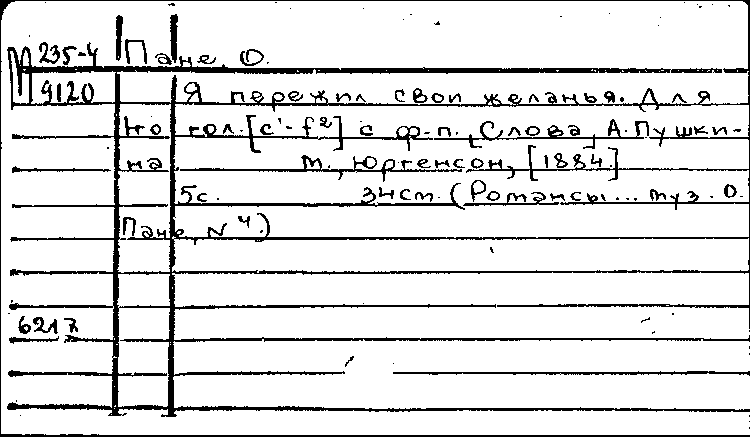 М 235-4 Пане, О.
9120 Я пережил свои желанья. Для
1го гол. [c¹-f²] с ф-п., [Слова] А. Пушки-
на М., Юргенсон, [1884.]
5с. энст. (Романсы... муз. О.
Пане, N 4.)
6217